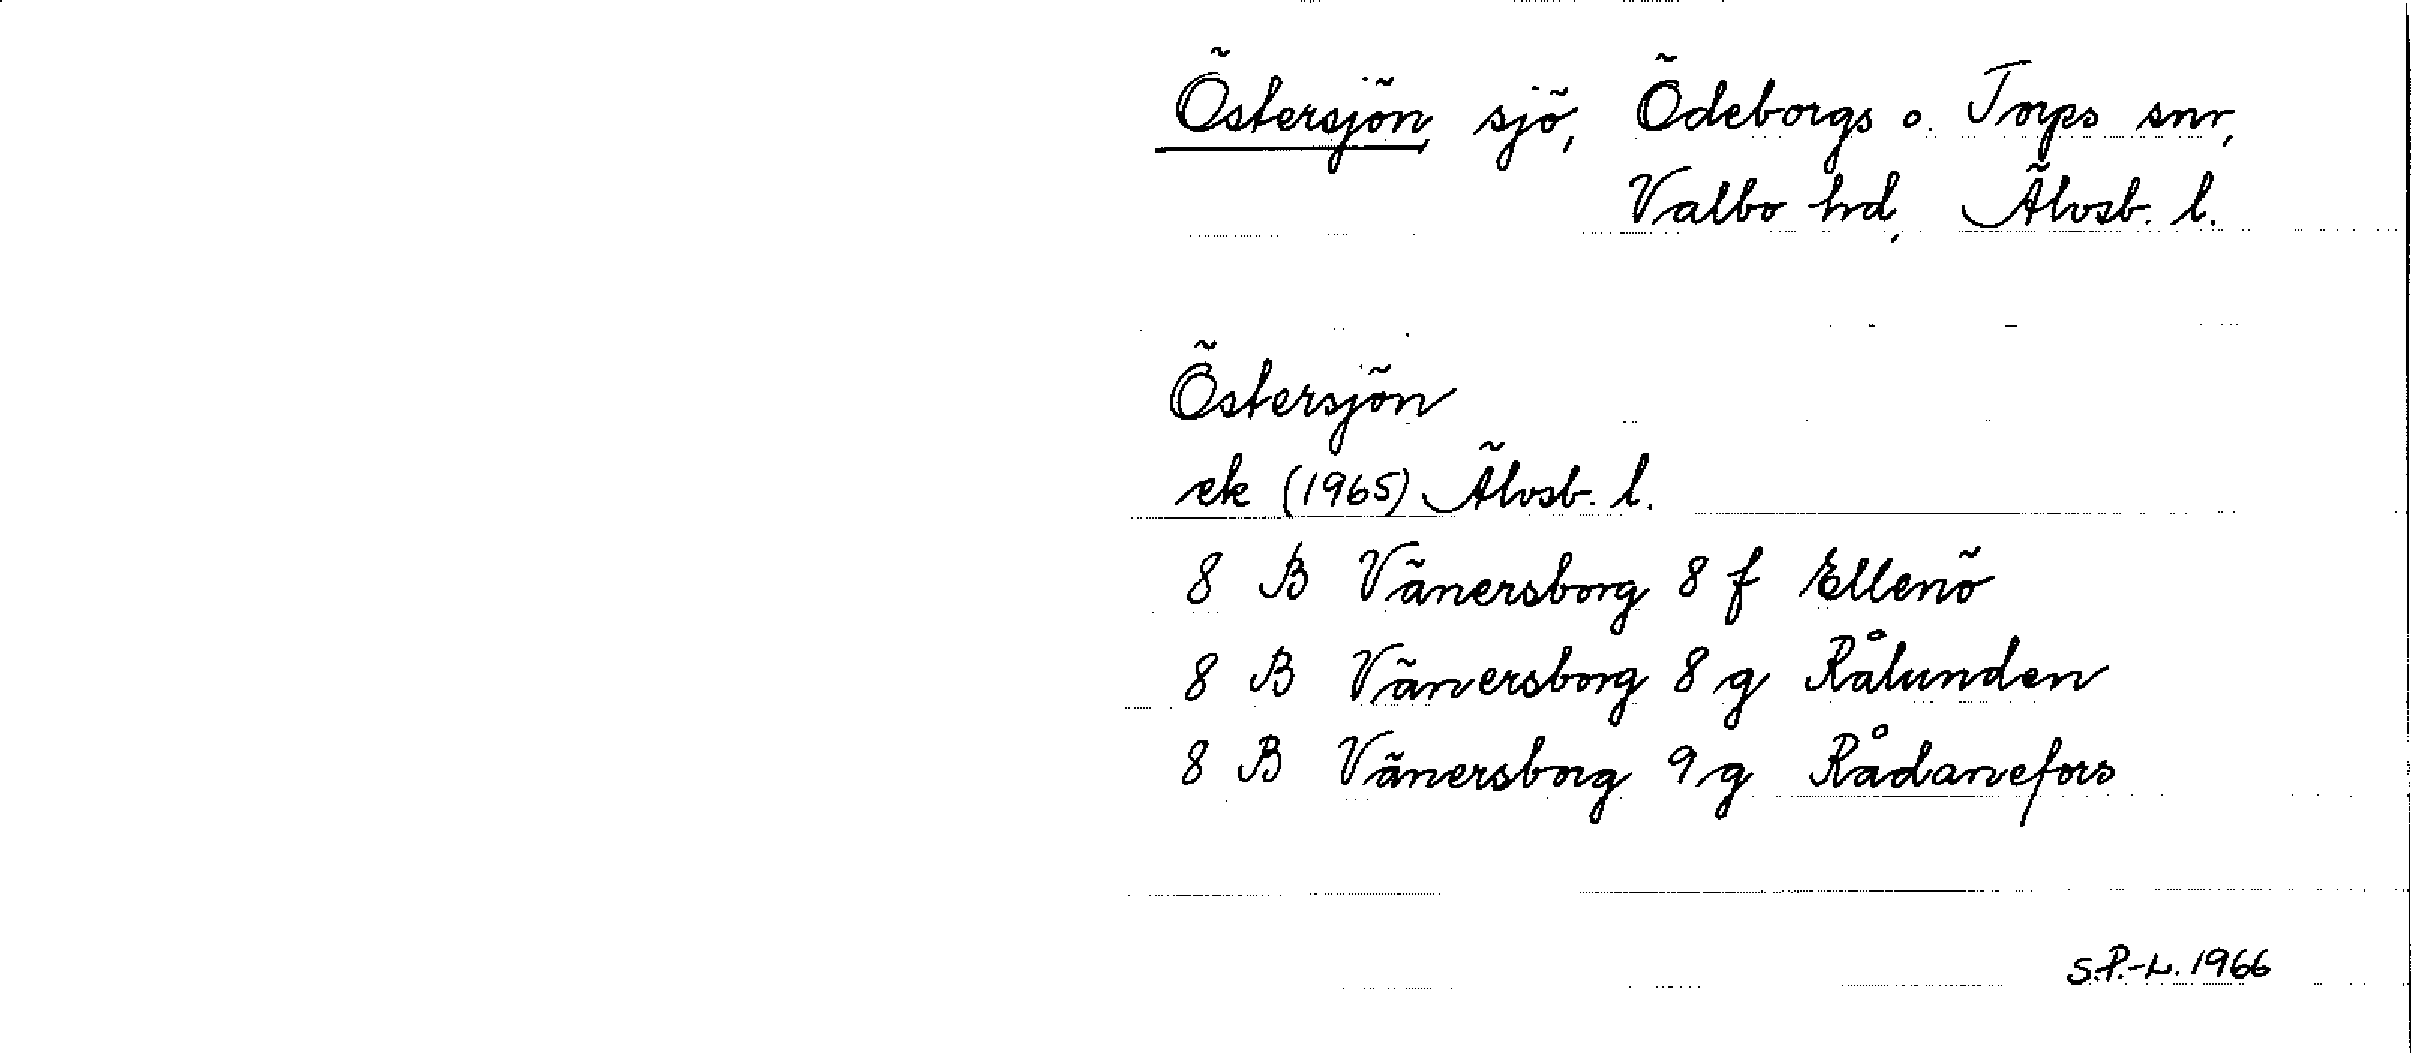 Östersjön sjö, Ödeborgs o. Torps snr,
Valbo hd, Älvsb. l.
Östersjön
ek (1965) Älvsb. l.
8 B Vänersborg 8 f Ellenö
8 B Vänersborg 8 g Rålunden
8 B Vänersborg 9 g Rådanefors
S.P.-L. 1966